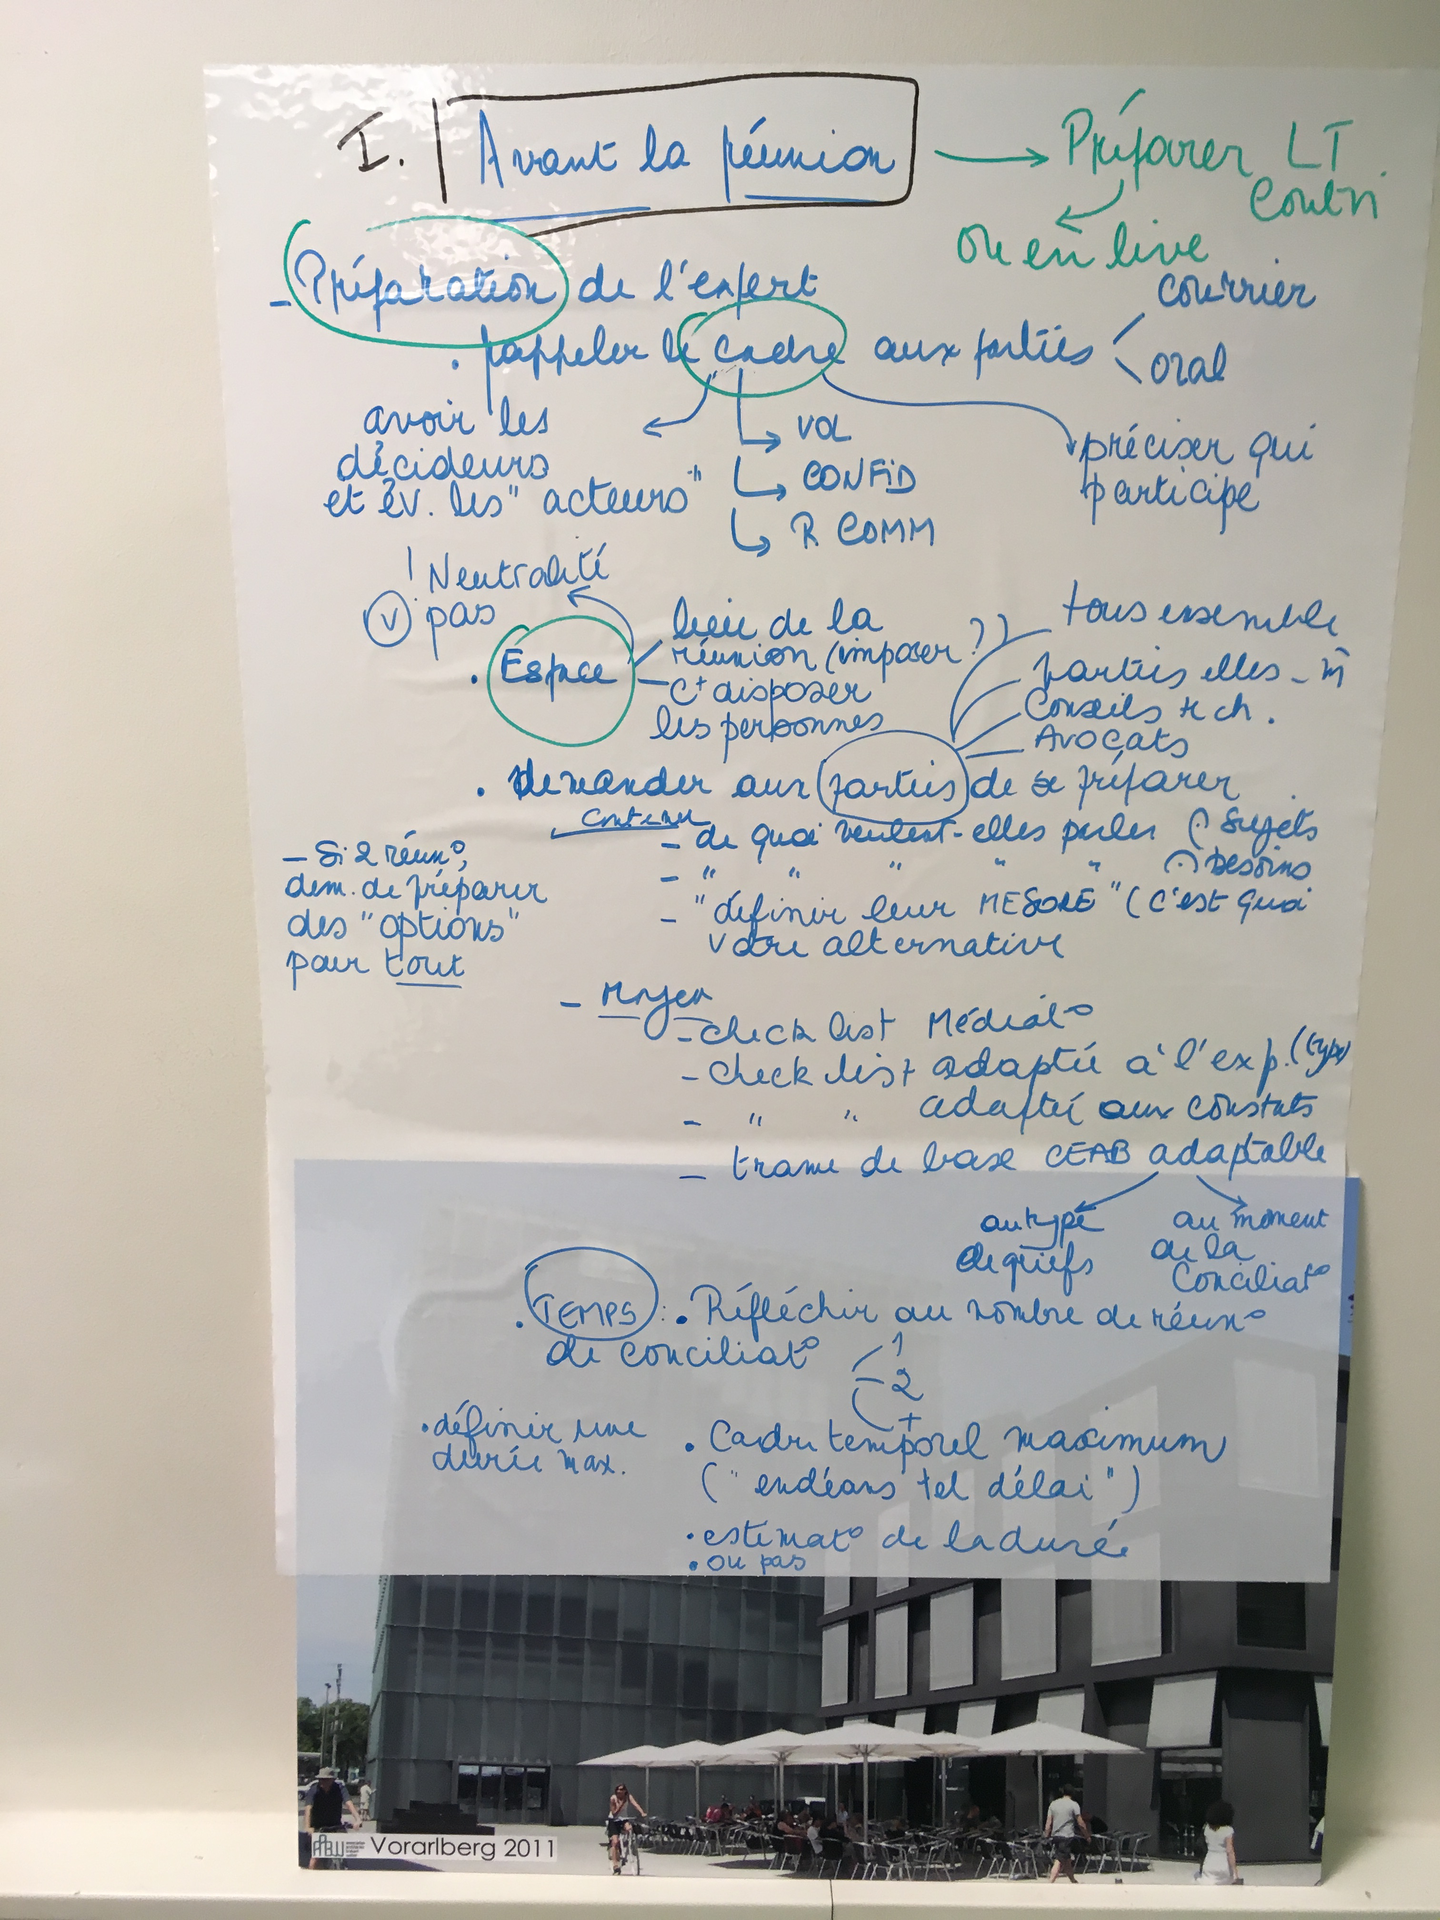 I. Avant la réunion → Préparer LT
Contri
ou en live
- Préparation de l'expert
. rappeler le cadre aux parties < courrier
oral
avoir les
décideurs
et év. les "acteurs"
→ VOL
→ CONFID
→ R COMM
préciser qui
participe
! Neutralité
(v) pas
. Espace
lieu de la
réunion (imposer?)
ct disposer
les personnes
tous ensemble
parties elles-m̂
Conseils tch.
Avocats
. demander aux parties de se préparer
contenu
- de quoi veulent-elles parler (Sujets
- " " " " " Besoins
- "définir leur MESORE" (c'est quoi
votre alternative
- Si 2 réun°,
dem. de préparer
des "options"
pour tout
- Moyen
- check list Médiat°
- check list adaptée à l'exp. (type)
- " " adapté aux constats
- trame de base CEAB adaptable
au type
de griefs
au moment
de la
Conciliat°
. TEMPS : . Réfléchir au nombre de réun°
de conciliat°
1
2
+
. définir une
durée max.
. Cadre temporel maximum
("endéans tel délai")
. estimat° de la durée
. ou pas
Vorarlberg 2011